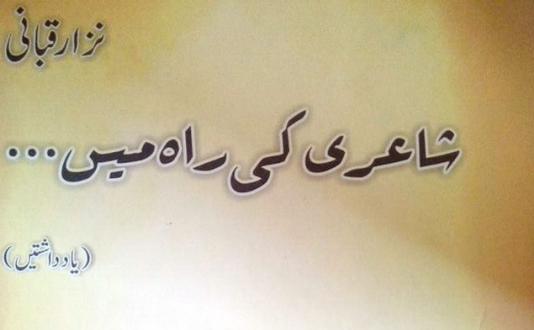 نزار قبانی
شاعری کی راہ میں...
(یادداشتیں)